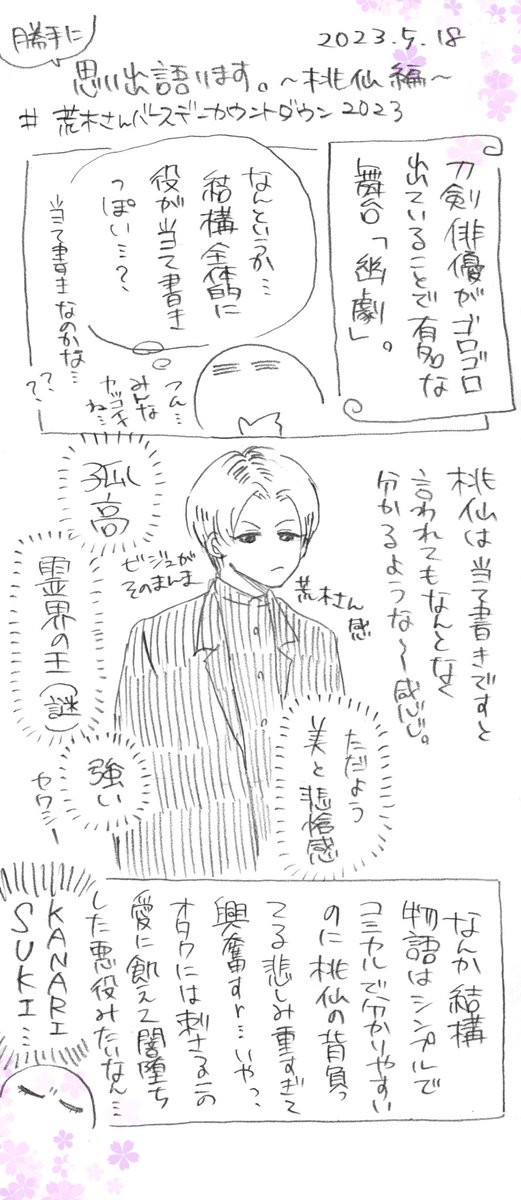 勝手に
2023.5.18
思い出語ります。〜桃仙編〜
# 荒木さんバースデーカウントダウン2023
刀剣俳優がゴロゴロ
出ていることで有名な
舞台「幽劇」。
なんというか…
結構全体的に
役が当て書き
っぽい…?
当て書きなのかな…
??
うん…
みんな
ね…
桃仙は当て書きですと
言われてもなんとなく
分かるような〜感じ。
孤高
ビジュが
そのまんま
荒木さん
感
霊界の王(謎)
強い
ただよう
美と悲愴感
なんか結構
物語はシンプルで
コミカルで分かりやすい
のに桃仙の背負っ
てる悲しみ重すぎて
興奮すr…いやっ、
オタクには刺さる一の
愛に飢えて闇堕ち
した悪役みたいなん…
KANARI
SUKI…